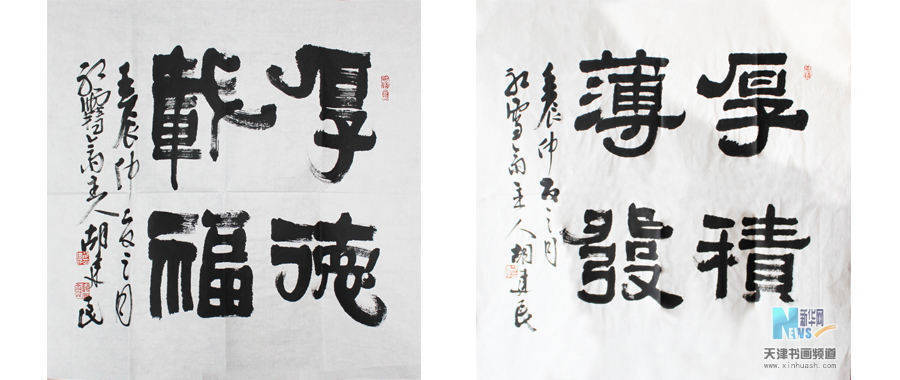 厚德
載福
壬辰仲夏之月
雪斋主人胡建民
厚積
薄發
壬辰仲夏之月
雪斋主人胡建民
新华网
NEWS
天津书画频道
www.xinhuash.com